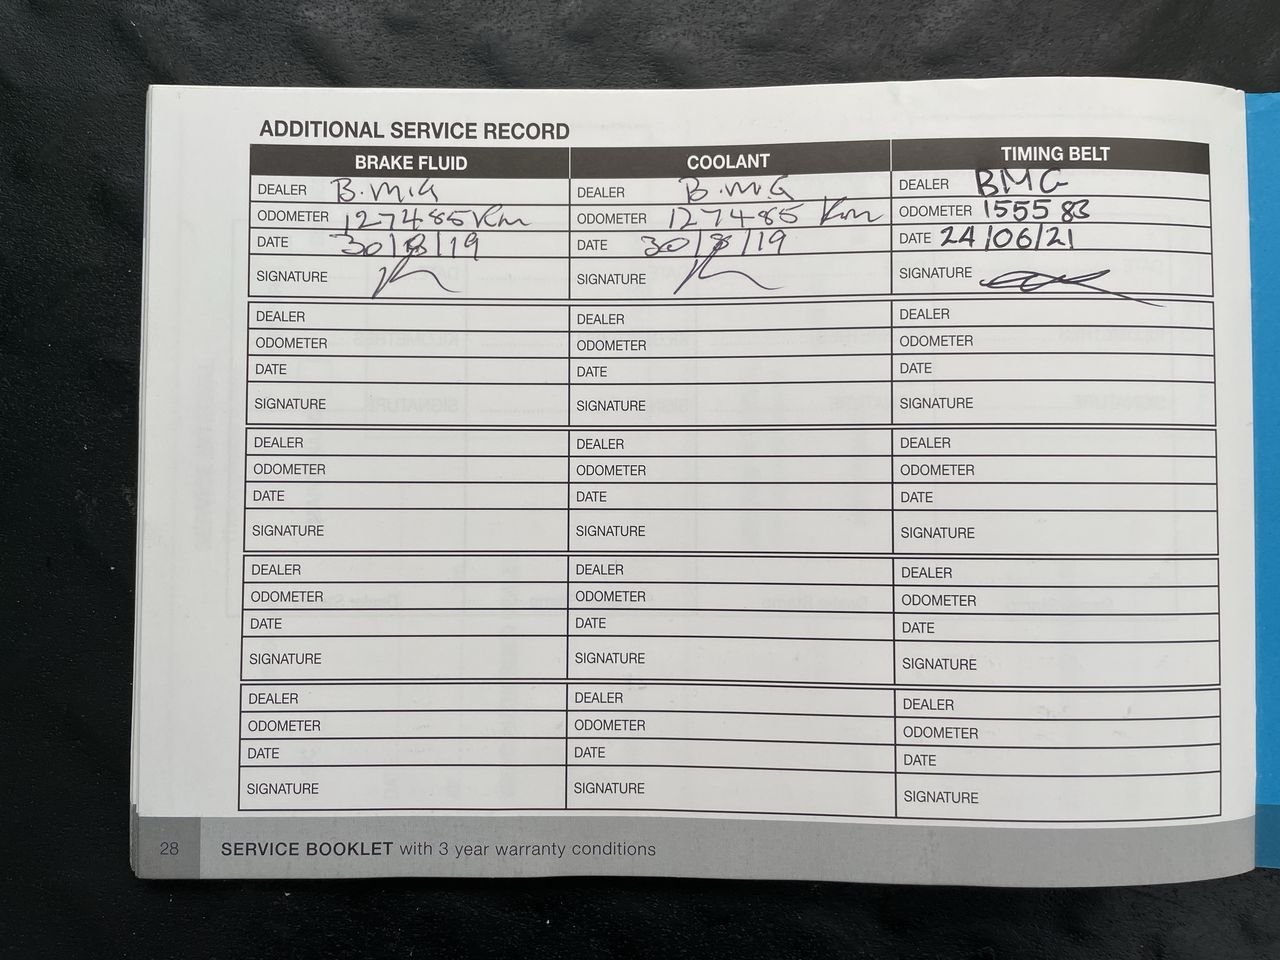 ADDITIONAL SERVICE RECORD
BRAKE FLUID COOLANT TIMING BELT
DEALER B.M.G DEALER B.M.G DEALER BMG
ODOMETER 127485 Km ODOMETER 127485 Km ODOMETER 155583
DATE 30/8/19 DATE 30/8/19 DATE 24/06/21
SIGNATURE SIGNATURE SIGNATURE
DEALER DEALER DEALER
ODOMETER ODOMETER ODOMETER
DATE DATE DATE
SIGNATURE SIGNATURE SIGNATURE
DEALER DEALER DEALER
ODOMETER ODOMETER ODOMETER
DATE DATE DATE
SIGNATURE SIGNATURE SIGNATURE
DEALER DEALER DEALER
ODOMETER ODOMETER ODOMETER
DATE DATE DATE
SIGNATURE SIGNATURE SIGNATURE
DEALER DEALER DEALER
ODOMETER ODOMETER ODOMETER
DATE DATE DATE
SIGNATURE SIGNATURE SIGNATURE
28 SERVICE BOOKLET with 3 year warranty conditions